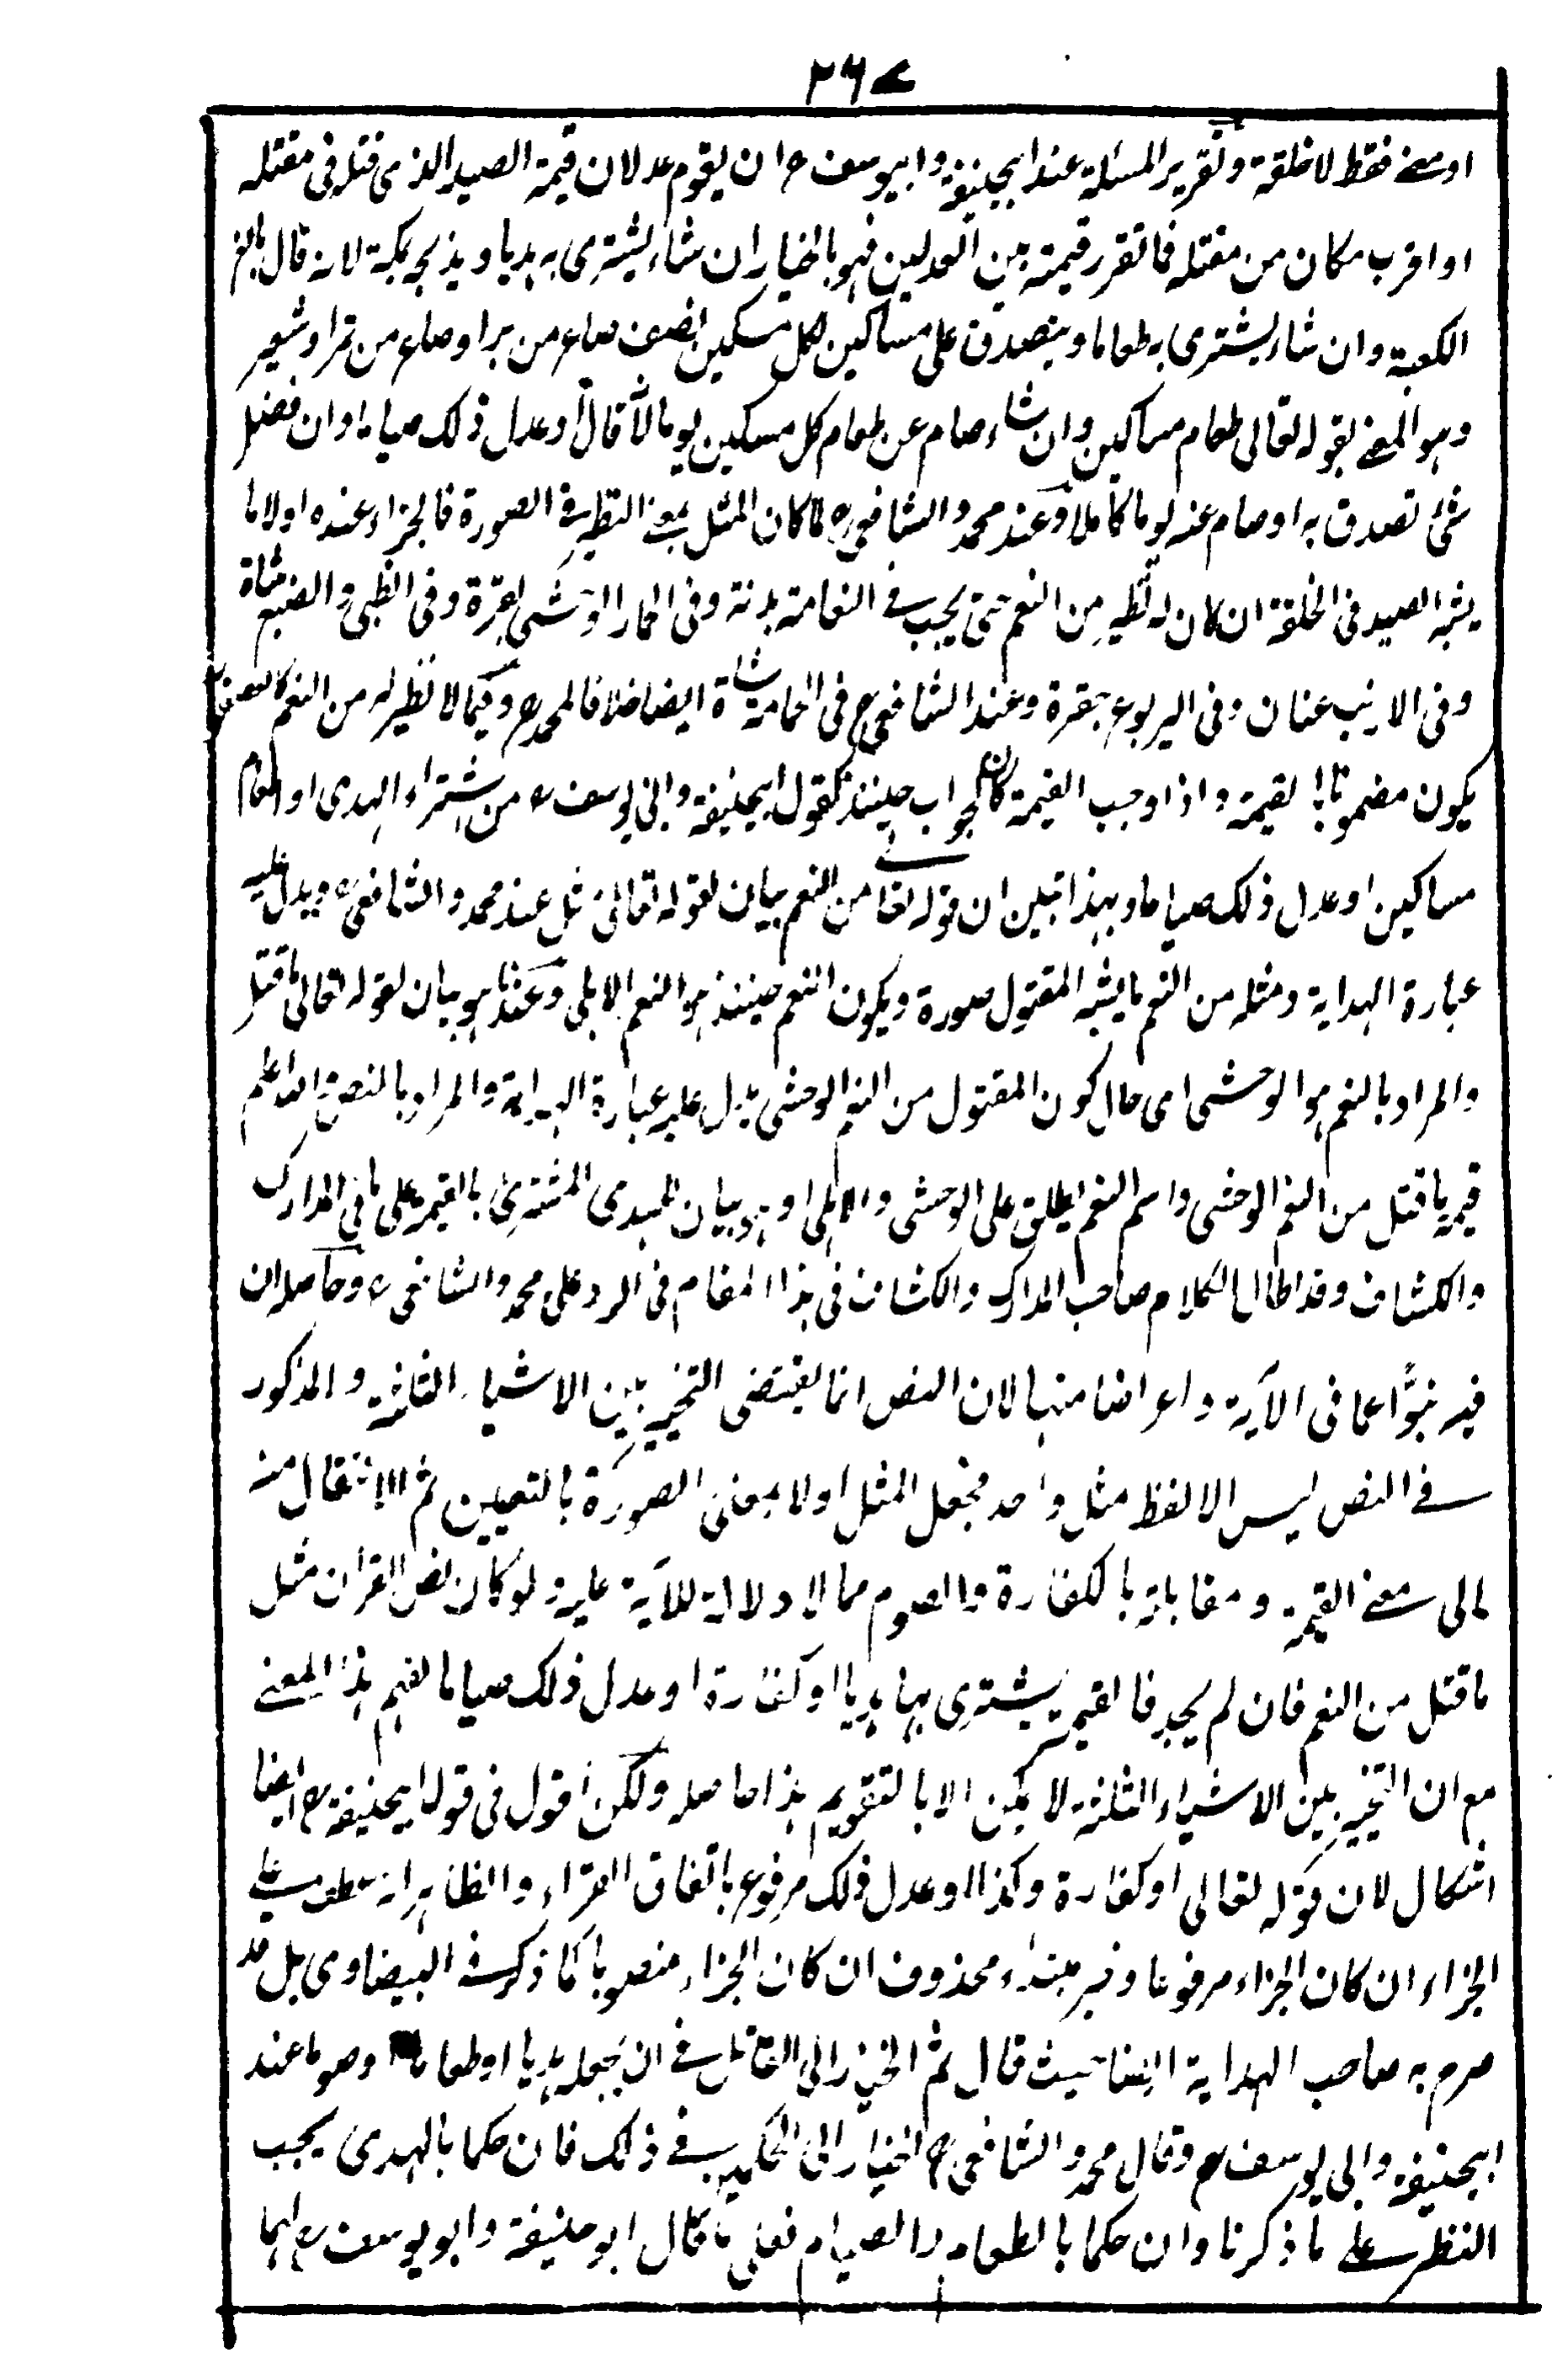 ٣٦٧
او معنے فقط لا خلقة وتقرير المسئلة عند ابيحنيفة وابيوسف رح ان يقوم عدلان قيمة الصيد الذى قتل فى مقتله
او اقرب مكان من مقتله فما تقرر قيمته بين العدلين فهو بالخيار ان شاء ليشترى به هديا ويذبح بمكة لانه قال بالغ
الكعبة وان شاء ليشترى به طعاما ويتصدق على مساكين لكل مسكين نصف صاع من بر او صاع من تمر او شعير
وهو المعنے بقوله تعالى طعام مساكين وان شاء صام عن طعام كل مسكين يوما لانه قال او عدل ذلك صياما وان فضل
شئ تصدق به او صام عنه يوما كاملا وعند محمد والشافعى رح لما كان المثل بمعنے النظير فے الصورة فالجزاء عنده اولا ما
يشبه الصيد فى الخلقة ان كان له نظير من النعم حتى يجب فے النعامة بدنة وفى الحمار الوحشى بقرة وفى الظبى والضبع شاة
وفى الارنب عناق وفى اليربوع جفرة وعند الشافعى رح فى الحمامة شاة ايضا خلافا لمحمد رح وفيما لا نظير له من النعم كالعصفور
يكون مضمونا بالقيمة واذا وجب القيمة كان الجواب حينئذ كقول ابيحنيفة وابى يوسف رح من اشتراء الهدى او اطعام
مساكين او عدل ذلك صياما وبهذا تبين ان قوله تعالے من النعم بيان لقوله تعالى مثل عند محمد والشافعى رح ويدل عليه
عبارة الهداية ومثله من النعم ما يشبه المقتول صورة ويكون النعم حينئذ هو النعم الاهلى وعندنا هو بيان لقوله تعالى ما قتل
والمراد بالنعم هو الوحشى اى حال كون المقتول من النعم الوحشى يدل عليه عبارة الهداية والمراد بالنص والله اعلم
قيمة ما قتل من النعم الوحشى واسم النعم يطلق على الوحشى والاهلى او هو بيان للهدى المشترى بالقيمة على ما فى المدارك
والكشاف وقد اطال الكلام صاحب المدارك والكشاف فى هذا المقام فى الرد على محمد والشافعى رح وحاصله ان
فيه نبوّا عما فى الآية واعراضا عنها لان النص انما يقتضى التخيير بين الاشياء الثلثة والمذكور
فے النص ليس الا لفظ مثل واحد فجعل المثل اولا بمعنى الصورة بالتعيين ثم الانتقال منه
الى معنے القيمة ومقابلته بالكفارة والصوم مما لا دلالة للآية عليه ولو كان نص القرآن مثل
ما قتل من النعم فان لم يجد فالقيمة يشترى بها هديا او كفارة او عدل ذلك صياما لفهم هذا المعنے
مع ان التخيير بين الاشياء الثلثة لا يمكن الا بالتقويم هذا حاصله ولكن اقول فى قول ابيحنيفة رح ايضا
اشكال لان قوله تعالى او كفارة وكذا او عدل ذلك مرفوع باتفاق القراء والظاهر انه عطف علے
الجزاء ان كان الجزاء مرفوعا وخبر مبتداء محذوف ان كان الجزاء منصوبا كما ذكر فے البيضاوى بل قد
صرح به صاحب الهداية ايضا حيث قال ثم الخيار الى القاتل فے ان يجعله هديا او طعاما او صوما عند
ابيحنيفة وابى يوسف رح وقال محمد والشافعى رح الخيار الى الحكمين فے ذلك فان حكما بالهدى يجب
النظير علے ما ذكرنا وان حكما بالطعام او الصيام فعلى ما قال ابو حنيفة وابو يوسف رح انما